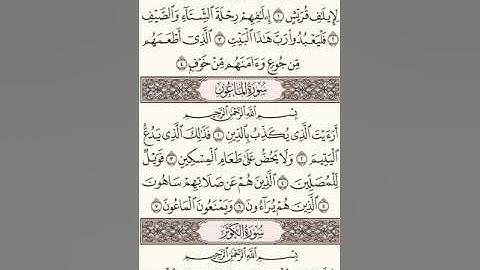 لِإِيلَٰفِ قُرَيْشٍ ١ إِۦلَٰفِهِمْ رِحْلَةَ ٱلشِّتَآءِ وَٱلصَّيْفِ
٢ فَلْيَعْبُدُوا۟ رَبَّ هَٰذَا ٱلْبَيْتِ ٣ ٱلَّذِىٓ أَطْعَمَهُم
مِّن جُوعٍ وَءَامَنَهُم مِّنْ خَوْفٍۭ ٤
سُورَةُ المَاعُونِ
بِسْمِ ٱللَّهِ ٱلرَّحْمَٰنِ ٱلرَّحِيمِ
أَرَءَيْتَ ٱلَّذِى يُكَذِّبُ بِٱلدِّينِ ١ فَذَٰلِكَ ٱلَّذِى يَدُعُّ
ٱلْيَتِيمَ ٢ وَلَا يَحُضُّ عَلَىٰ طَعَامِ ٱلْمِسْكِينِ ٣ فَوَيْلٌ
لِّلْمُصَلِّينَ ٤ ٱلَّذِينَ هُمْ عَن صَلَاتِهِمْ سَاهُونَ
٥ ٱلَّذِينَ هُمْ يُرَآءُونَ ٦ وَيَمْنَعُونَ ٱلْمَاعُونَ ٧
سُورَةُ الكَوْثَرِ
بِسْمِ ٱللَّهِ ٱلرَّحْمَٰنِ ٱلرَّحِيمِ